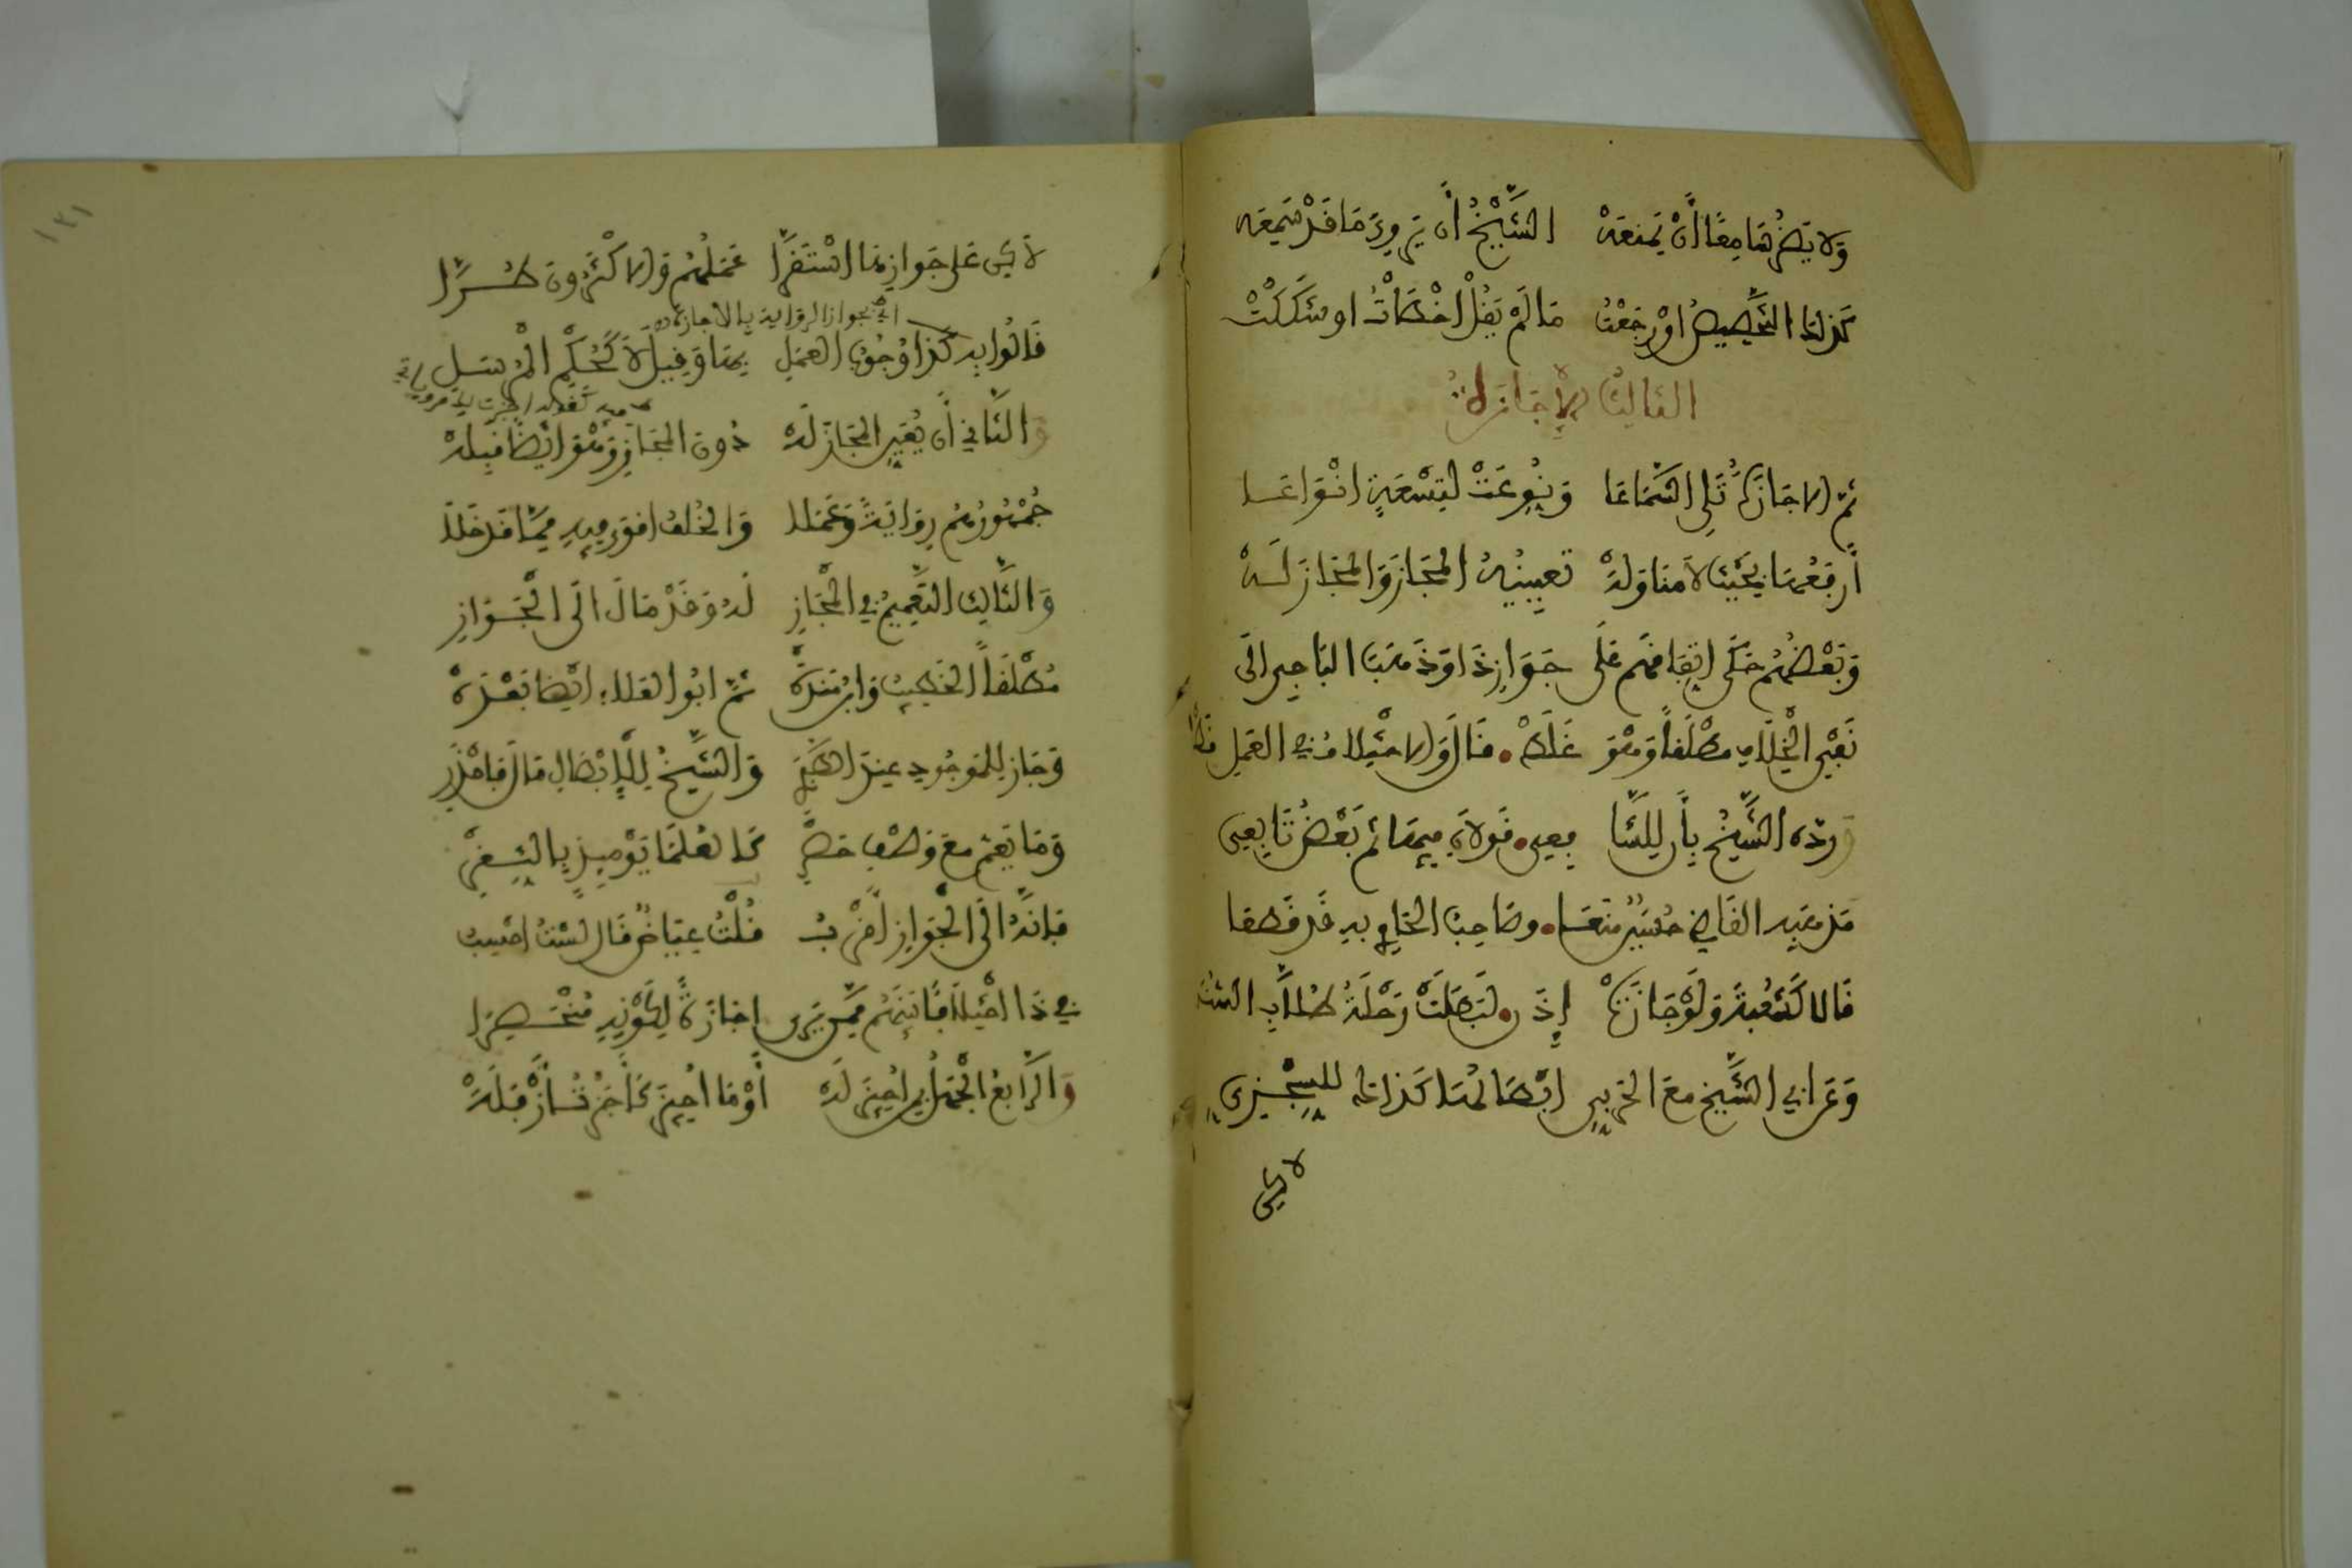 وَلا يَضُرُّ سَامِعًا أَنْ يَمْنَعَهْ الشَّيْخُ أَن يَرْوِيَ مَا قَدْ سَمِعَه
كَذلكَ التَّخْصِيصُ اوْ رَجَعْتُ مَا لَمْ يَقُلْ اخْطَأْتُ او شَكَكْتْ
الثالثُ الإِجَازَةُ
ثمّ الاجَازَةُ تَلِي السَّمَاعَا وَنُوِّعَتْ لِتِسْعَةٍ انْوَاعَا
أَرفَعُهَا بِحَيْثُ لاَ مناوَلَهْ تعيِينُهُ المُجَازَ وَالمُجَازَ لَهْ
وَبَعْضُهُم حَكَى اتِّفَاقَهُم عَلَى جَوَازِ ذَا وَذَهَبَ البَاجِي الَى
نَفْيِ الْخِلَافِ مطْلَقًا وَهْوَ غَلَطْ قَالَ وَالاخْتِلاف في العَمَلِ قَطْ
وَردّه الشَّيخُ بِأَن لِلشَّا فِعِي قَولاَنِ فِيهَا ثم بَعْضُ تَابِعِي
مَذهَبِه القَاضِي حُسَيْنٌ مَنَعَا وصَاحِبُ الحَاوِي بهِ قَد قَطعَا
قَالا كَشُعْبَةَ وَلَوْ جَازَتْ إِذَنْ لَبَطَلَتْ رَحْلَةُ طُلاَّبِ السُّنَنْ
وَعَن ابِي الشَّيْخ معَ الحَرْبِي ابْطَالُهَا كَذاكَ للسِّجْزِي
لاكن
لاَكِن عَلى جَوَازِهَا اسْتَقَرَّا عَمَلُهُم وَالاكْثَرُونَ طُرَّا
اي بجواز الرواية بالاجازة
قَالُوا بِهِ كَذَا وُجُوبُ العَمَلِ بِهَا وَقِيلَ لاَ كَحُكْمِ الْمُرْسَلِ
وَالثَّانِي أَن يُعَيِّنَ المُجَازَ لَه دُونَ المُجَازِ وَهْوَ ايْضًا قَبِلَهْ
جُمْهُورُهُم رِوَايَةً وَعَمَلا وَالخُلْفُ اقوَى فِيهِ مِمَّا قَد خَلَا
وَالثَّالِثُ التَّعْمِيمُ فِي الْمُجَازِ لَهُ وَقَدْ مَالَ الَى الْجَوَازِ
مُطْلَقًا الخَطِيبُ وَابْنُ مَنْدَهْ ثمّ ابُو العَلاء ايْضًا بَعْدَهْ
وَجَازَ لِلمَوْجُودِ عِندَ الطَّبَرِي وَالشَّيْخُ لِلْإِبْطَالِ مَالَ فَاحْذَرِ
وَمَا يَعُمّ معَ وَصْفِ حَصْرِ كَالعُلَمَا يَوْمَئِذٍ بِالثَّغْرِ
فَإنَّهُ الَى الْجَوَازِ أَقْرَبُ قُلْتُ عِيَاضٌ قَالَ لسْتُ احْسِبُ
فِي ذَا اخْتِلاَفًا بَيْنَهُم مِمَّن يَرَى اجَازَةً لِكَوْنِهِ مُنْحَصِرَا
وَالرَّابِعُ الْجَهْلُ بِمَن اُجِيزَ لَه أَوْ مَا اُجِيزَ كَأَجَزْتُ أَزْفَلَهْ